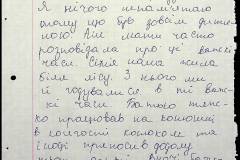 Я нічого непам'ятаю
тому що був зовсім дитиною
Але мати часто
розповідала про ці важкі
часи. Сімя наша жила
біля лісу. З нього ми
й годувалися в ті важкі
часи Батько тяжко
працював на конюшні
в колгоспі конюхом та
іноді приносив додому